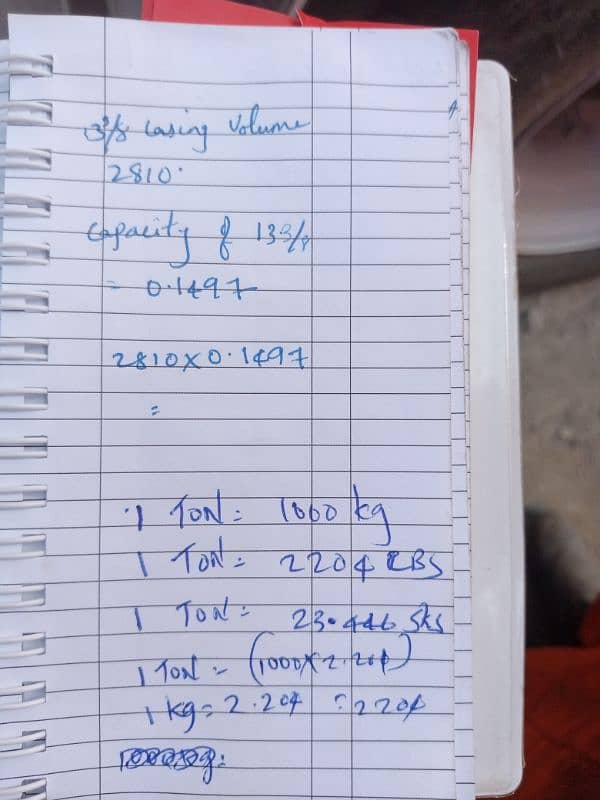 13 3/8 casing Volume
2810.
capacity of 13 3/8
= 0.1497
2810 X 0.1497
=
1 TON = 1000 kg
1 TON = 2204 LBS
1 TON = 23.446 SKS
1 TON = (1000 X 2.204)
1 kg = 2.204 = 2204